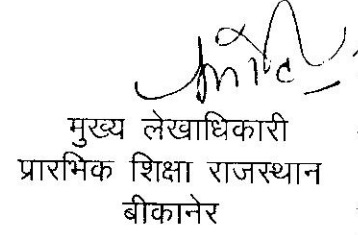 मुख्य लेखाधिकारी
प्रारभिक शिक्षा राजस्थान
बीकानेर